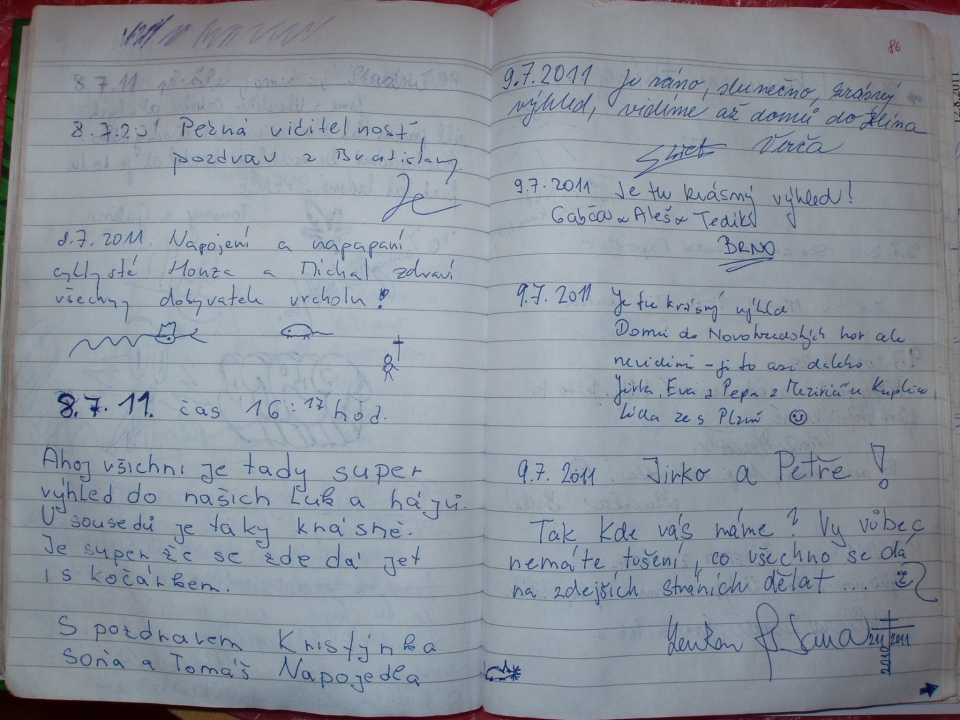 8.7.201 Pěkná viditelnost,
pozdrav z Bratislavy
Je
8.7.2011. Napojení a napapaní
cyklysté Honza a Michal zdraví
všechny dobyvatele vrcholu!
8.7.11. čas 16:17 hod.
Ahoj všichni je tady super
výhled do našich Luk a hájů.
U sousedů je taky krásně.
Je super že se zde dá jet
i s kočárkem.
S pozdravem Kristýnka
Soňa a Tomáš Napojedla
86
9.7.2011 Je ráno, slunečno, krásný
výhled, vidíme až domů do
Verča
9.7.2011 Je tu krásný výhled!
Gabča & Aleš & Tedík
BRNO
9.7.2011 Je tu krásný výhled
Domů do Novohradských hor ale
nevidími - ji to asi daleko
Jirka, Eva a Pepa z Meziříčí u Kaplice,
Lída ze s Plzně
9.7.2011 Jirko a Petře!
Tak kde vás máme? Vy vůbec
nemáte tušení, co všechno se dá
na zdejších stráních dělat ....
Jana
2010 2011